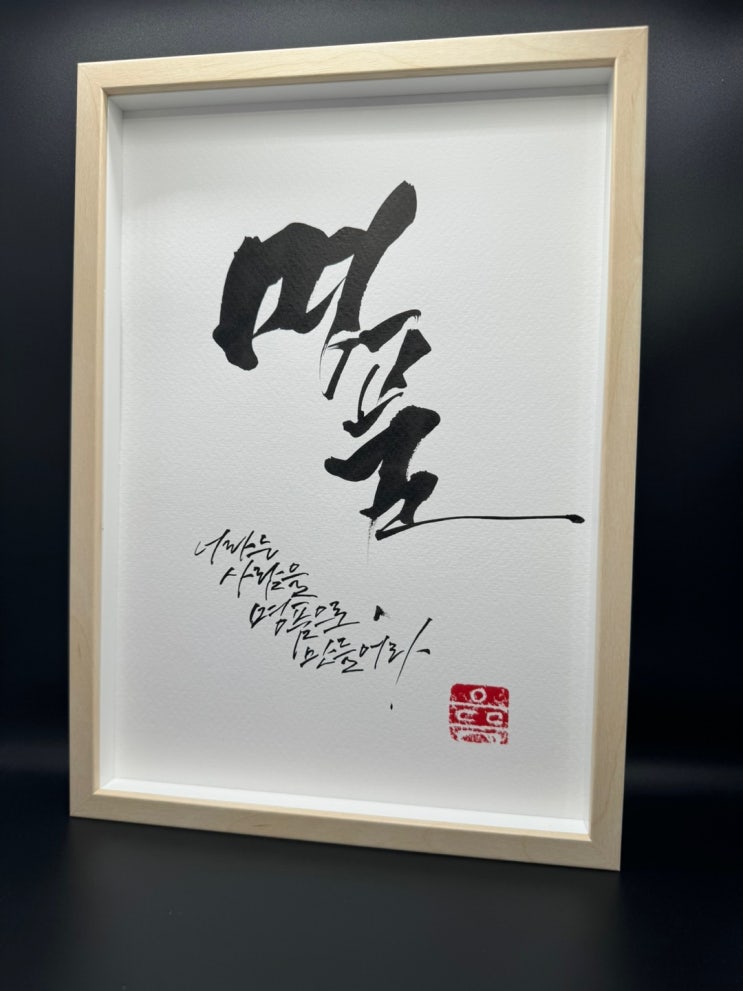 명품
너라는
사람을
명품으로
만들어라